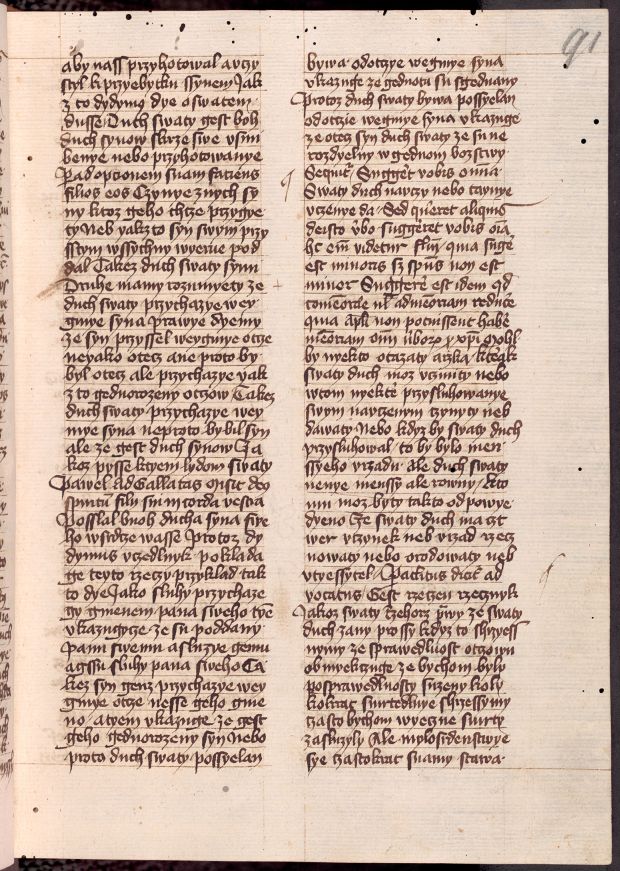 91
aby nass przyhotowal a vczy
styl k przyebytku ssynem Jak
z to dydymo dye o swatem
dusse Duch swaty gest boh
duch synow skrze swe vssin
benye nebo przyhotowanye
Pad opcionem suam faciens
filios eos Czynye z nych sy
ny ktoz geho chtze przygye
ty Neb yakzto syn swym przy
sstym wssychny wyerne pod
dal Takez duch swaty synu
Druhe mamy rozumyety ze
duch swaty przychazye wey
gmye syna prawye dyemy
ze syn przyssel weygmye otcze
neyako otecz ane proto by
byl otecz ale przychazye yak
z to gednorozeny otczow Takez
duch swaty przychazye wey
mye syna neproto by byl syn
ale ze gest duch synow Ja
koz pysse ktyem lydom swaty
Pawel Ad Gallatas Misit deo
spiritu filii sui in corda vestra
Posslal buoh ducha syna swe
ho wsrdcze wasse Protoz dy
dymus vczedlnyk poklada
ge teyto rzeczy przyklad tak
to dye Jako sluhy przychaze
gy gmenem pana sweho tye
vkazugycze ze su poddany
Panu swemu a sluzye gemu
a gssu sluhy pana sweho Ta
kez syn genz przychazye wey
gmye otcze nesse geho gme
no a tyem vkazuge ze gest
geho gednorozeny syn Nebo
proto duch swaty possyelan
bywa odotczye wegmye syna
vkazuge ze gednota su sgednany
Protoz duch swaty bywa possyelan
odotczie wegmye syna vkazuge
ze otecz syn duch swaty ze su ne
rozdyelny w gednom bozstwy
Sequitur Suggeret vobis omnia
Swaty duch navczy nebo taynye
vczenye da Sed queret aliquis
est minoris sz spiritus non est
minor Suggerere est idem quod
by nyekto otazaty
swaty duch moz vczinity nebo
wtom nyekterz przysluhowanye
swym navczenym czynyty neb
dawaty Nebo kdyz by swaty duch
przysluhowal to by bylo men
ssyeho vrzadu Ale duch swaty
nenye menssy ale rowny Kto
mu moz byty takto odpowye
dyeno Cze swaty duch ma czt
wer vczynek neb vrzad rzecz
nowaty nebo orodowaty neb
vtyessytel Paclitus dicitur ad
vocatus Gest rzeczen rzecznyk
Jakoz swaty rzehorz prawy ze swaty
duch zany prossy kdyz to shrzess
nymy ze sprawedlnost otczowu
obmyekczuge ze bychom byly
posprawedlnosty suzeny koly
kokrat smrtedlnye shrzessymy
czasto bychom wyeczne smrty
zasluzyly Ale mylosrdenstwye
sye czastokrat snamy stawa